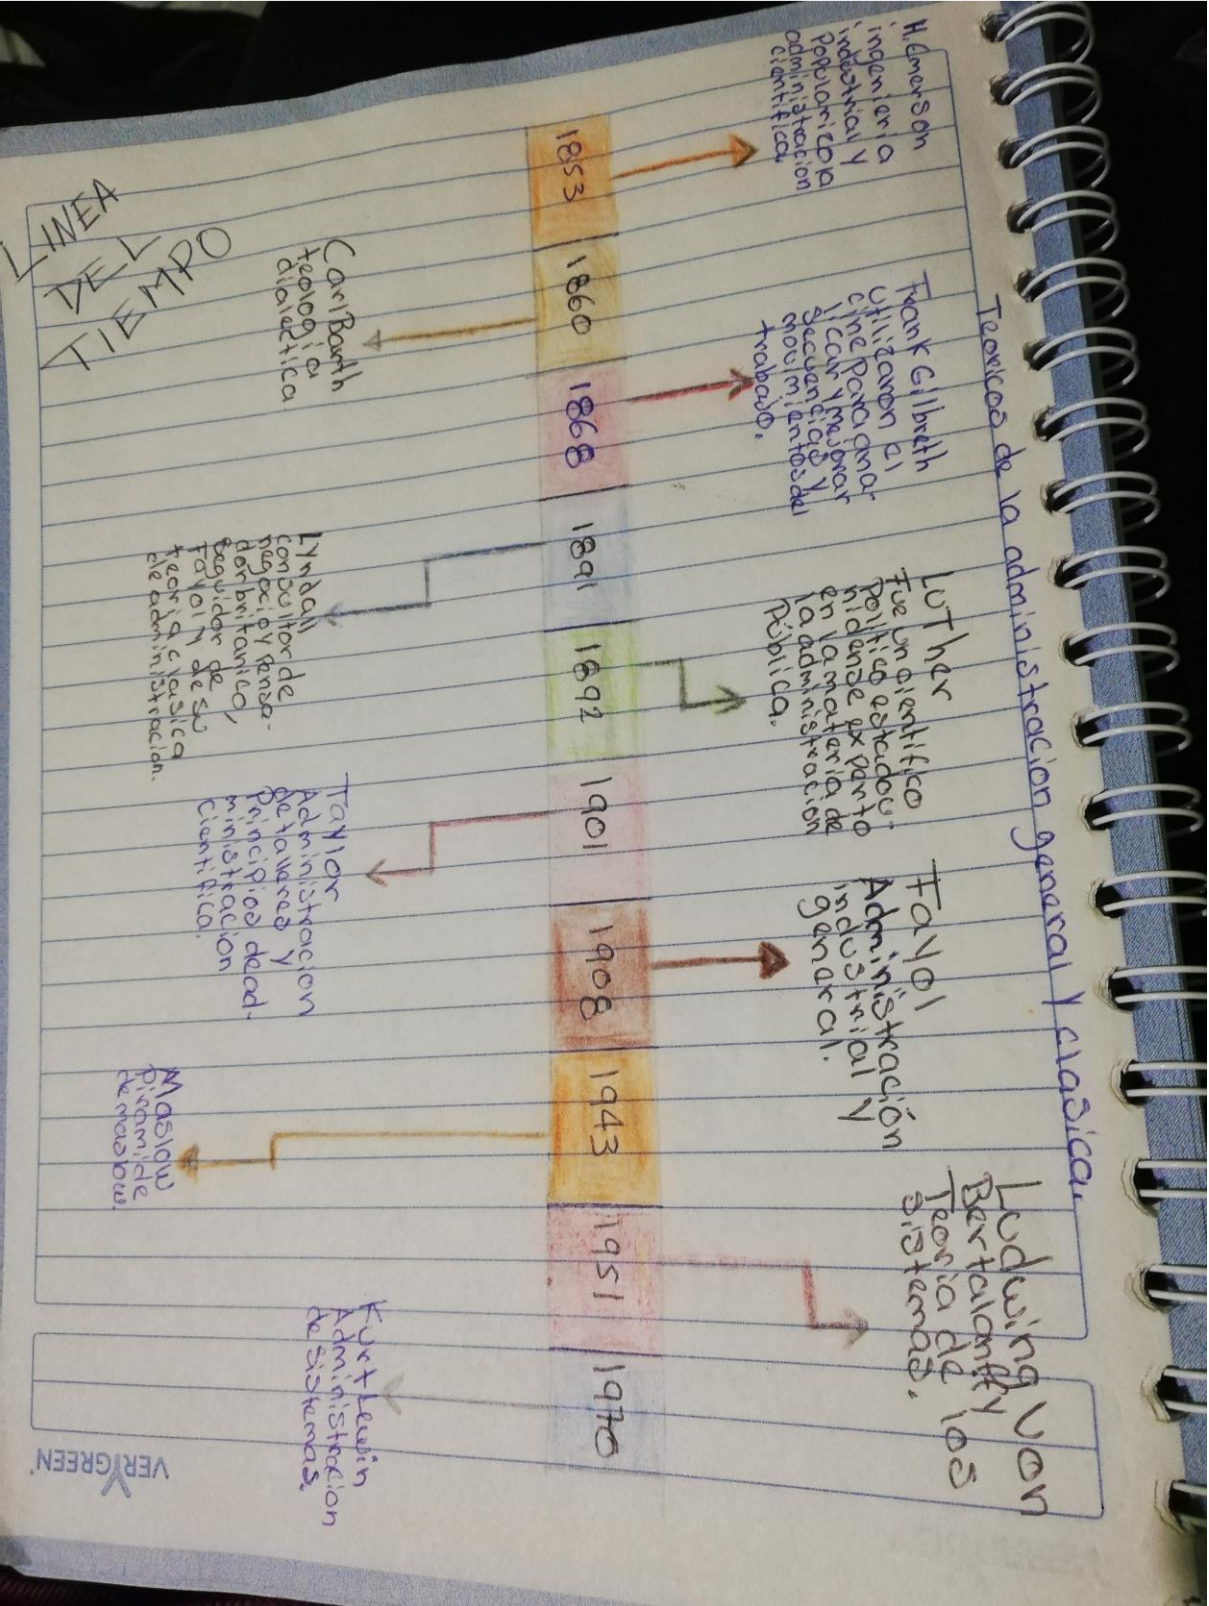 Teoricos de la administracion general y clasica.
H. Emerson
ingenieria
industrial y
popularico la
administracion
cientifica
Frank Gilbreth
utilizaron el
cine para ana-
lizar y mejorar
secuencias y
movimientos del
trabajo.
LuTher
Fue un cientifico
Politico estadou-
nidense experto
en la materia de
la administración
Pública.
Fayol
Administración
industrial y
general.
Ludwing Von
Bertalanffy
Teoria de los
sistemas.
1853
1860
1868
1891
1892
1901
1908
1943
1951
1970
Carl Barth
teologia
dialectica
Lyndall
consultor de
negocio y pensa-
dor britanico,
seguidor de
Fayol y de su
teoria clasica
de administracion.
Taylor
Administracion
de talleres y
Principios de ad-
ministracion
cientifica.
Maslow
Piramide
de maslow.
Kurt Lewin
Administracion
de sistemas.
LINEA
DEL
TIEMPO
VERYGREEN